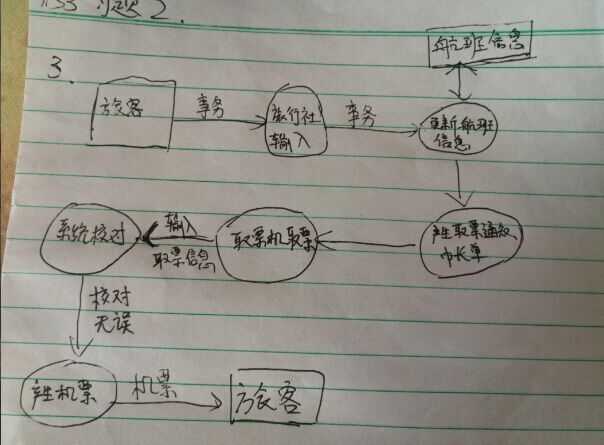 习题2.
航班信息
3.
旅客
事务
旅行社
输入
事务
更新航班
信息
产生取票通知
帐单
取票机取票
输入
取票信息
系统核对
核对
无误
产生机票
机票
旅客